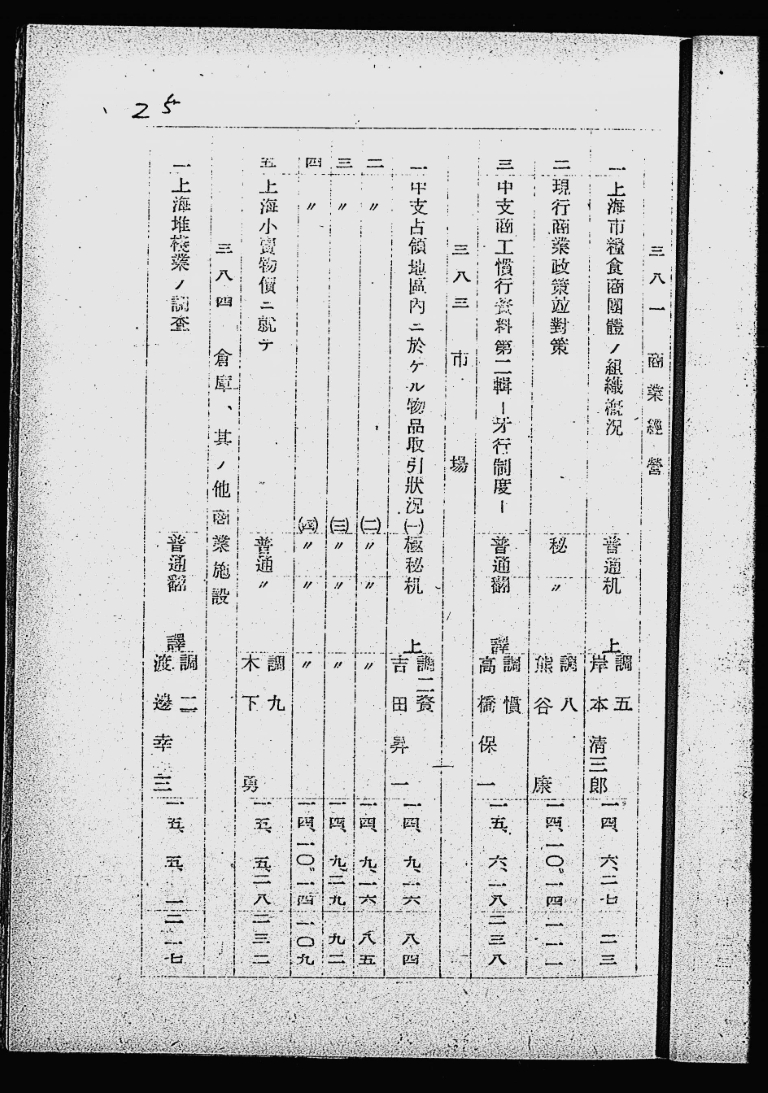 25
三八一 商業經營
一 上海市糧食商團體ノ組織概況 普通 机上 調五 岸本清三郎 一四、六、二七 二三
二 現行商業政策竝對策 秘 〃 調八 熊谷康 一四、一〇、一四 一一一
三 中支商工慣行資料第二輯ー牙行制度ー 普通 翻譯 調慣 高橋保一 一五、六、一八 二三八
三八三 市場
一 中支占領地區內ニ於ケル物品取引狀況(一) 極秘 机上 調二資 吉田昇一 一四、九、一六 八四
二 〃 (二) 〃 〃 〃 一四、九、一六 八五
三 〃 (三) 〃 〃 〃 一四、九、二九 九二
四 〃 (四) 〃 〃 〃 一四、一〇、一四 一〇九
五 上海小賣物價ニ就テ 普通 〃 調九 木下勇 一五、五、二八 二三二
三八四 倉庫、其ノ他商業施設
一 上海堆棧業ノ調査 普通 翻譯 調二 渡邊幸三 一五、五、一 二一七